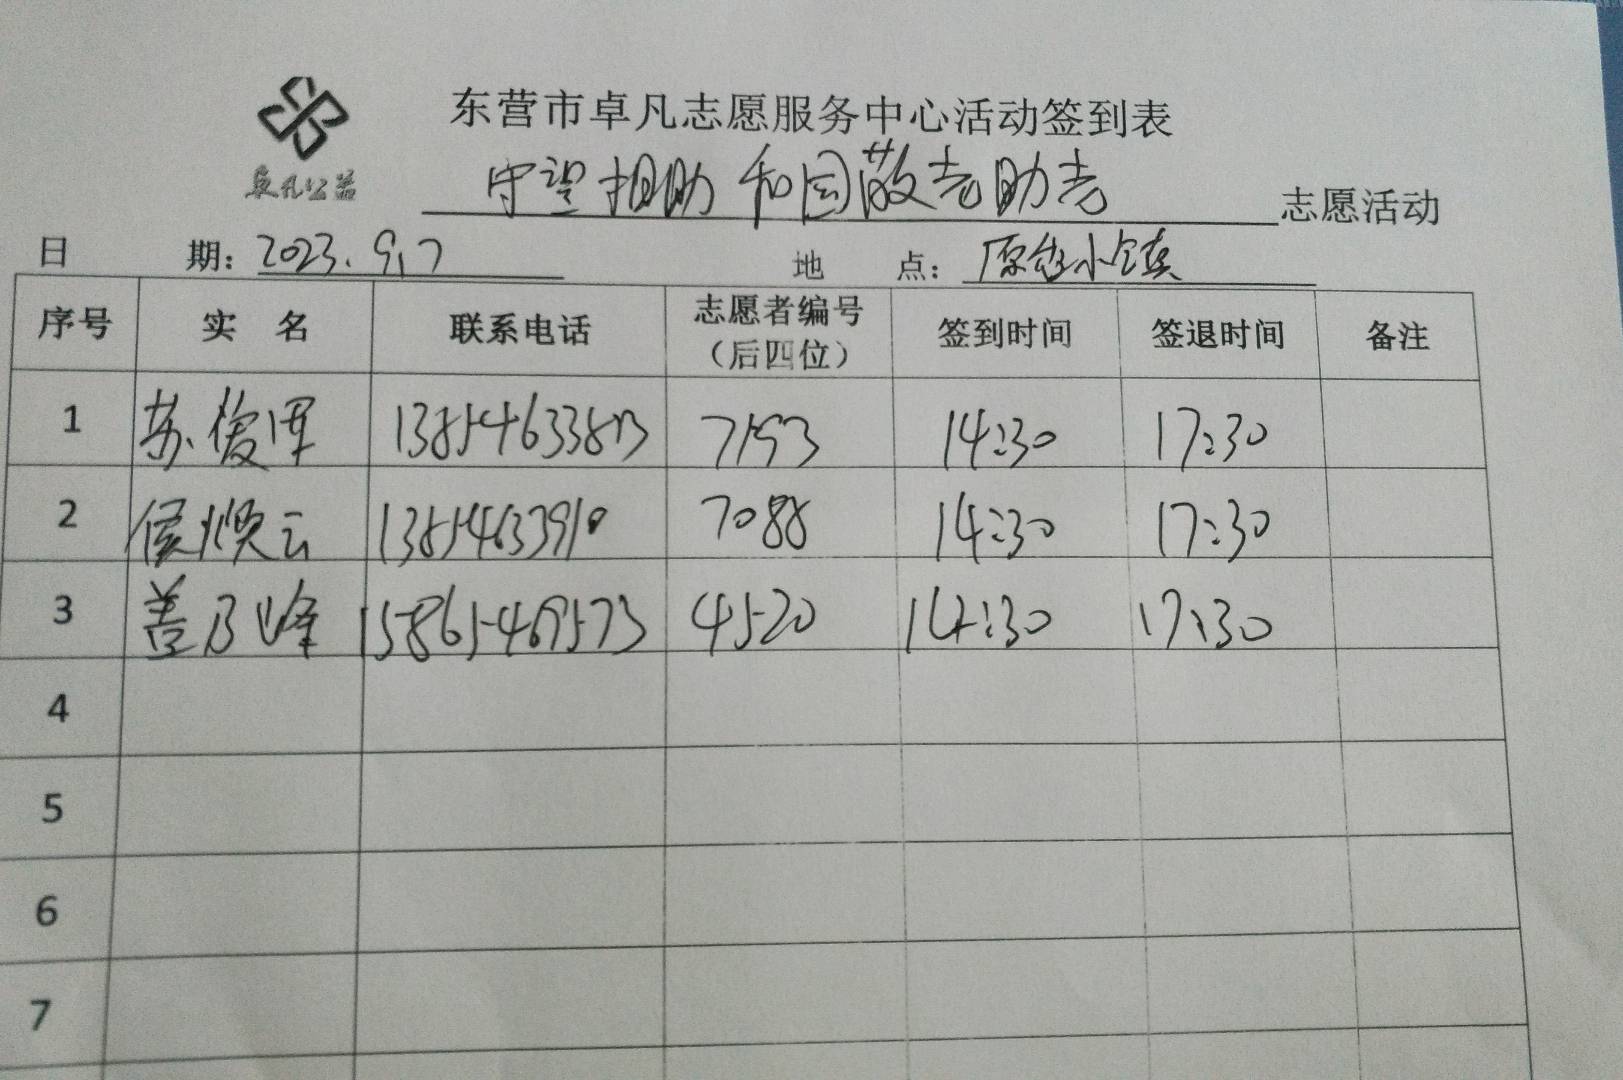 东营市卓凡志愿服务中心活动签到表
卓凡公益
守望相助 和园敬老助老 志愿活动
日 期: 2023.9.7 地 点: 小镇
序号 实 名 联系电话 志愿者编号（后四位） 签到时间 签退时间 备注
1 苏俊军 7193 14:30 17:30
2 侯焕云 13854633910 7088 14:30 17:30
3 善乃峰 15865469573 4520 14:30 17:30
4
5
6
7